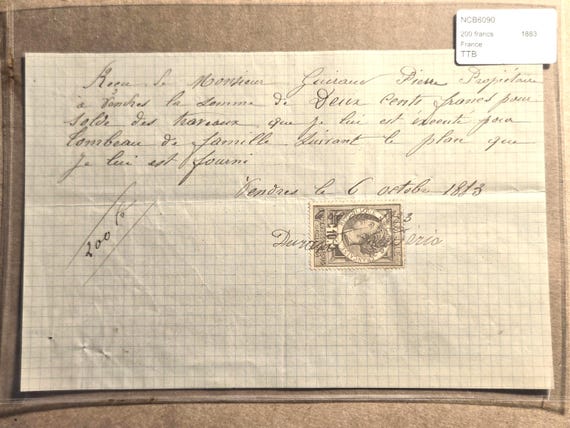 NCB6090
200 francs 1883
France
TTB
Reçu de Monsieur Guiraud Pierre Propriétaire
à Vendres la somme de Deux cents francs pour
solde des traveaux que je lui est executé pour
tombeau de famille suivant le plan que
je lui est fourni
Vendres le 6 octobre 1883
200 f
10